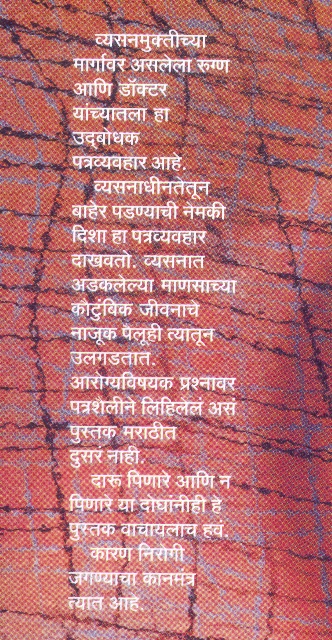 व्यसनमुक्तीच्या
मार्गावर असलेला रुग्ण
आणि डॉक्टर
यांच्यातला हा
उद्‌बोधक
पत्रव्यवहार आहे.
व्यसनाधीनतेतून
बाहेर पडण्याची नेमकी
दिशा हा पत्रव्यवहार
दाखवतो. व्यसनात
अडकलेल्या माणसाच्या
कौटुंबिक जीवनाचे
नाजूक पैलूही त्यातून
उलगडतात.
आरोग्यविषयक प्रश्नावर
पत्रशैलीने लिहिलेलं असं
पुस्तक मराठीत
दुसरं नाही.
दारू पिणारे आणि न
पिणारे या दोघांनीही हे
पुस्तक वाचायलाच हवं.
कारण निरोगी
जगण्याचा कानमंत्र
त्यात आहे.